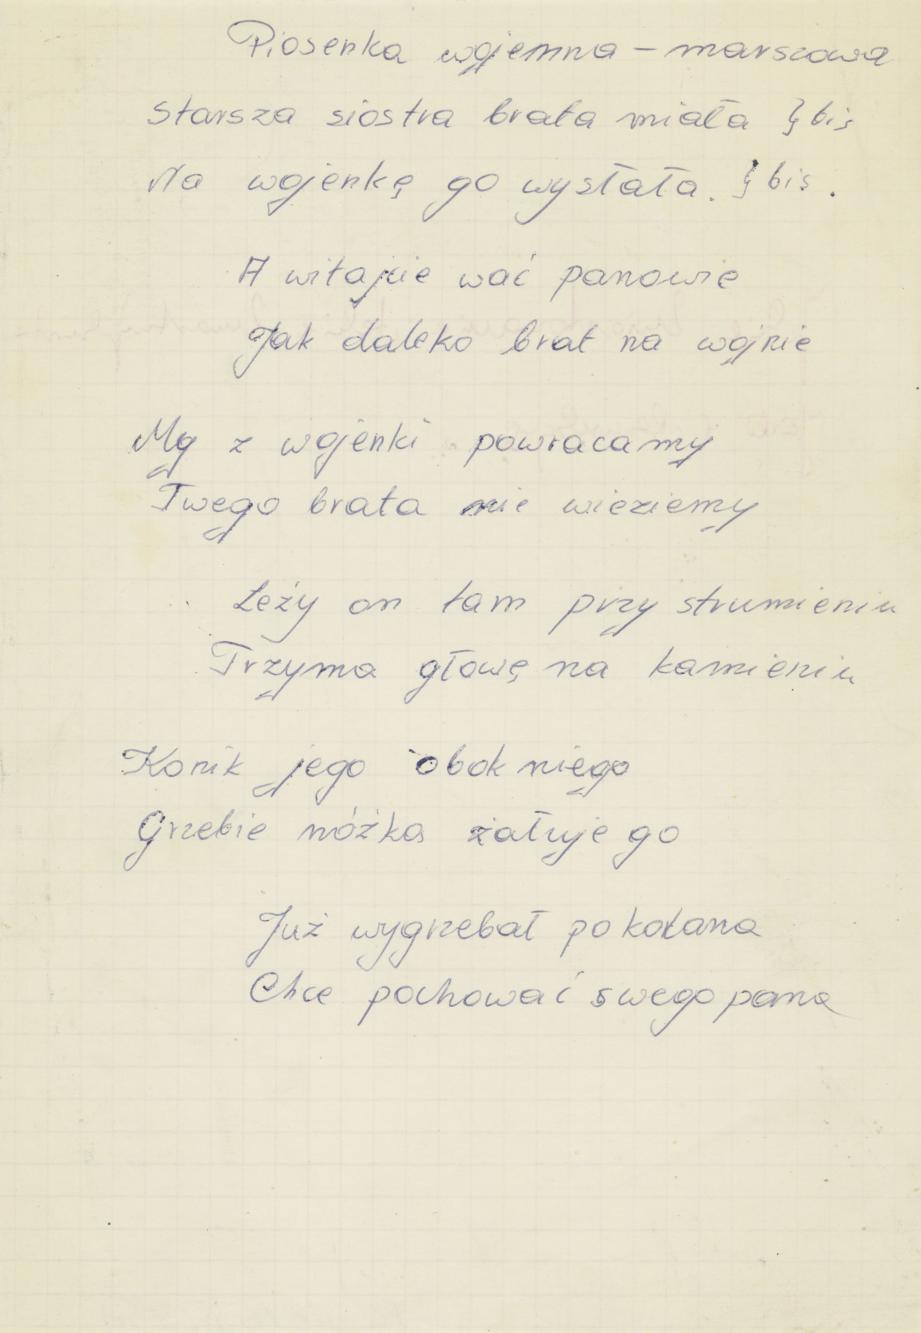 Piosenka wojenna – marszowa
Starsza siostra brata miała } bis
Na wojenkę go wysłała. } bis.
A witajcie wać panowie
Jak daleko brat na wojnie
My z wojenki powracamy
Twego brata nie wieziemy
Leży on tam przy strumieniu
Trzyma głowę na kamieniu
Konik jego obok niego
Grzebie nóżką żałuje go
Już wygrzebał po kolana
Chce pochować swego pana